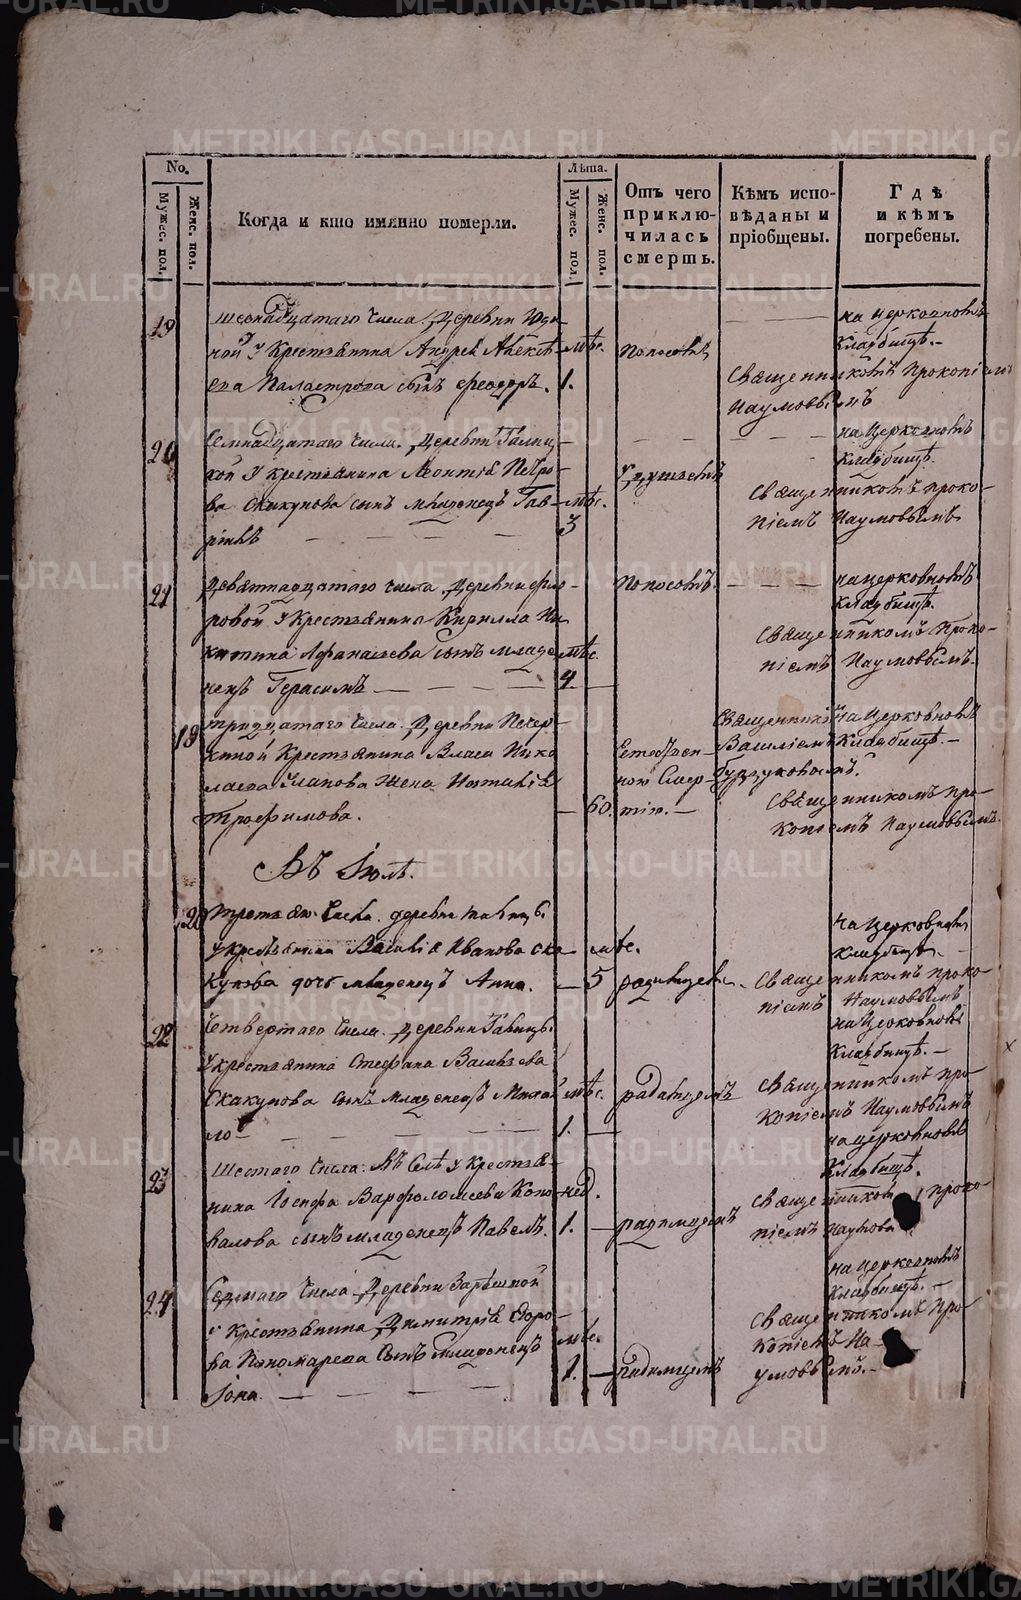 No.
Мужес. пол.
Женс. пол.
Когда и кто именно померли.
Лѣта.
Мужес. пол.
Женс. пол.
Отъ чего приклю-
чилась смерть.
Кѣмъ испо-
вѣданы и
пріобщены.
Гдѣ
и кѣмъ
погребены.
19
шеснадцатаго Числа Деревни
ной у Крестьянина Андрея Алексѣ-
ева сынъ Феодоръ.
мѣс.
1.
Поносомъ
на церковномъ
Кладбищѣ.-
Священникомъ Прокопіемъ
Наумовымъ
20
Семнадцатаго Числа. Деревни Галиц-
кой у крестьянина Леонтія Петро-
ва Скакунова сынъ младенецъ Гав-
ріилъ
мѣс.
3
на Церковномъ
Кладбищѣ.
Священникомъ Проко-
піемъ Наумовымъ
21
Девятнадцатаго числа Деревни Фро-
ловой у Крестьянина Кирилла Ни-
китина Афанасьева сынъ младе-
нецъ Герасимъ
мѣс.
4.
Поносомъ.
на церковномъ
Кладбищѣ.
Священникомъ Проко-
піемъ Наумовымъ.
19
тридцатаго Числа. Деревни
Крестьянина Власа Нико-
лаева Жена Наталія
Трофимова.
60.
Естествен-
ною Смер-
тію.
Священникомъ
Василіемъ
на Церковномъ
Кладбищѣ.-
Священникомъ Про-
копіемъ Наумовымъ.
Въ Іюлѣ.
20
третьяго Числа. деревни Галицк.
у крестьянина Василія Иванова Ска-
кунова дочь младенецъ Анна.
мѣс.
5
родимцемъ.
на Церковномъ
Кладбищѣ.
Священникомъ Проко-
піемъ Наумовымъ
22
Четвертаго Числа. Деревни Галицк.
у крестьянина Стефана Васильева
Скакунова сынъ Младенецъ Михай-
ло
мѣс.
1.
родимцомъ
на Церковномъ
Кладбищѣ.-
Священникомъ Про-
копіемъ Наумовымъ
23
Шестаго Числа. Въ Селѣ у Крестья-
нина Іосифа Варфоломеева Коно-
валова сынъ младенецъ Павелъ.
нед.
1.
родимцомъ
на церковномъ
Кладбищѣ.
Священникомъ Проко-
піемъ Наумовы
24
Седмаго Числа Деревни Зарѣшной
у Крестьянина Димитрія Егоро-
ва Пономарева Сынъ Младенецъ
Іона.
мѣс.
1.
родимцемъ
на Церковномъ
Кладбищѣ.-
Священникомъ Про-
копіемъ На-
умовымъ.-
METRIKI.GASO-URAL.RU